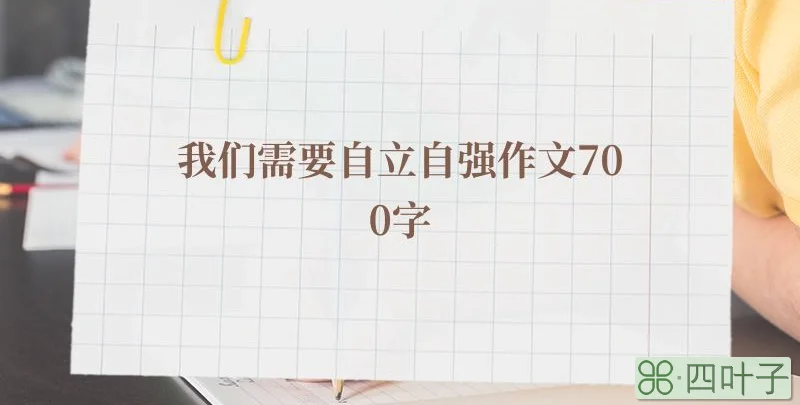 我们需要自立自强作文70
0字
⌘·四叶子